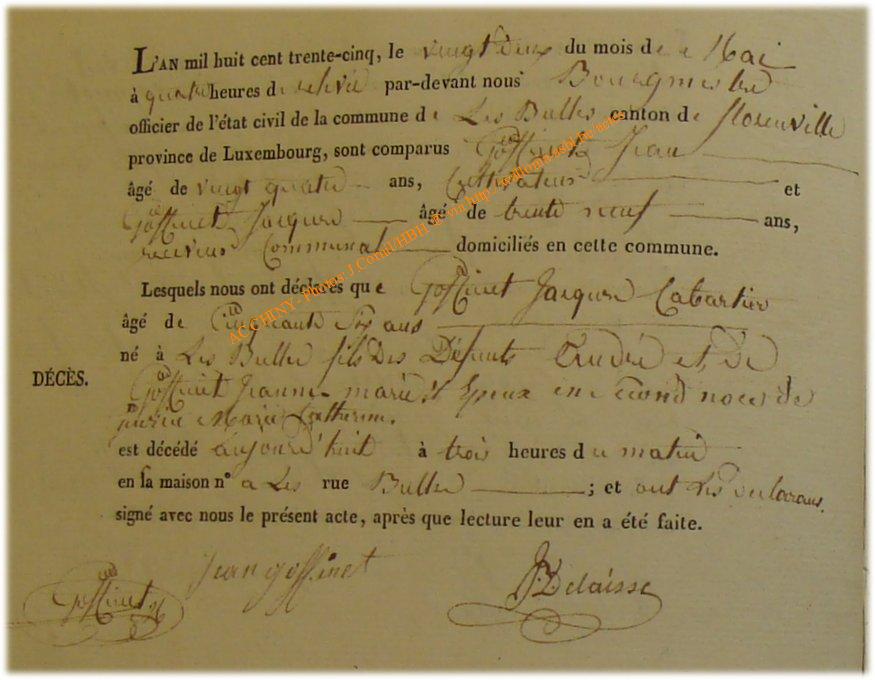 L'AN mil huit cent trente-cinq, le vingt deux du mois de Mai
à quatre heures de relevée par-devant nous Bourgmestre
officier de l'état civil de la commune de Les Bulles canton de florenville
province de Luxembourg, sont comparus Goffinet Jean
âgé de vingt quatre ans, Cultivateur et
Goffinet Jacques âgé de trente neuf ans,
receveur Communal domiciliés en cette commune.
Lesquels nous ont déclaré que Goffinet Jacques Cabartier
âgé de Cinquante Six ans
né à Les Bulles fils des Défunts et de
DÉCÈS.
Goffinet Jeanne marie et Epoux en second noces de
Marie Catherine.
est décédé aujourd'huit à trois heures du matin
en sa maison n° a Les rue Bulles ; et ont les declarans
signé avec nous le présent acte, après que lecture leur en a été faite.
Goffinet Jean goffinet J Delaisse
AC CHINY - Photos J.Collin/HBH